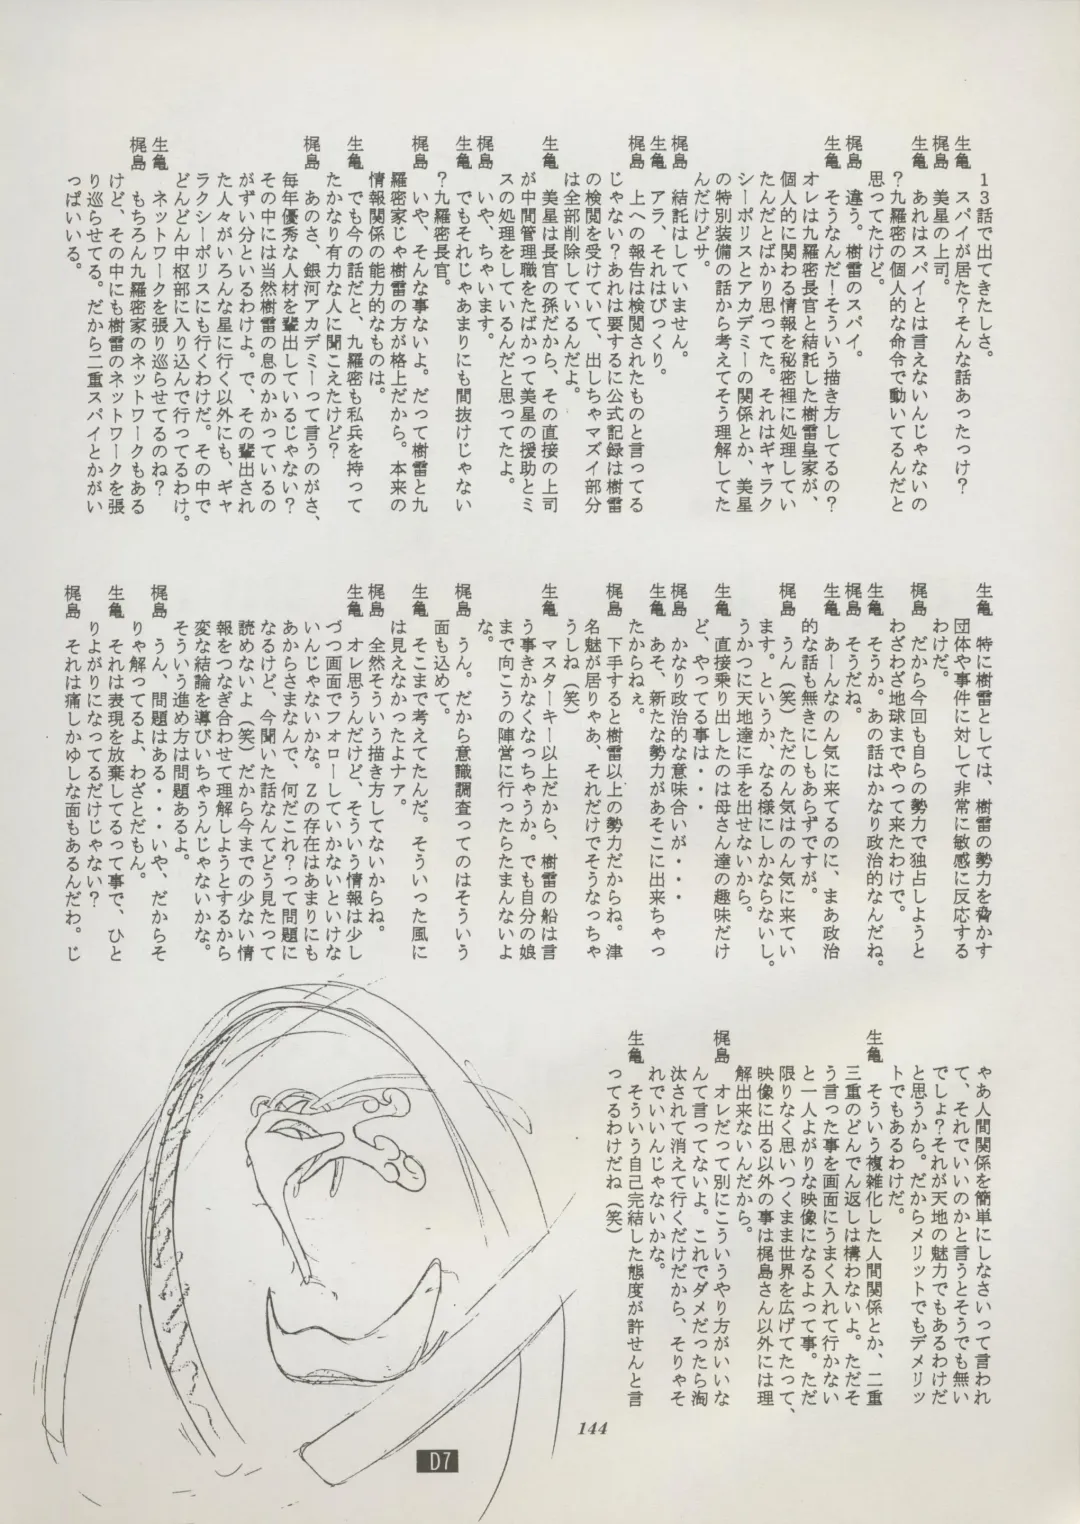 13話で出てきたしさ。
生亀　スパイが居た？そんな話あったっけ？
梶島　美星の上司。
生亀　あれはスパイとは言えないんじゃないの
？九羅密の個人的な命令で動いてるんだと
思ってたけど。
梶島　違う。樹雷のスパイ。
生亀　そうなんだ！そういう描き方してるの？
オレは九羅密長官と結託した樹雷皇家が、
個人的に関わる情報を秘密裡に処理してい
たんだとばかり思ってた。それはギャラク
シーポリスとアカデミーの関係とか、美星
の特別装備の話から考えてそう理解してた
んだけどサ。
梶島　結託はしていません。
生亀　アラ、それはびっくり。
梶島　上への報告は検閲されたものと言ってる
じゃない？あれは要するに公式記録は樹雷
の検閲を受けていて、出しちゃマズイ部分
は全部削除しているんだよ。
生亀　美星は長官の孫だから、その直接の上司
が中間管理職をたばかって美星の援助とミ
スの処理をしているんだと思ってたよ。
梶島　いや、ちゃいます。
生亀　でもそれじゃあまりにも間抜けじゃない
？九羅密長官。
梶島　いや、そんな事ないよ。だって樹雷と九
羅密家じゃ樹雷の方が格上だから。本来の
情報関係の能力的なものは。
生亀　でも今の話だと、九羅密も私兵を持って
たかなり有力な人に聞こえたけど？
梶島　あのさ、銀河アカデミーって言うのがさ、
毎年優秀な人材を輩出しているじゃない？
その中には当然樹雷の息のかかっているの
がずい分といるわけよ。で、その輩出され
た人々がいろんな星に行く以外にも、ギャ
ラクシーポリスにも行くわけだ。その中で
どんどん中枢部に入り込んで行ってるわけ。
生亀　ネットワークを張り巡らせてるのね？
梶島　もちろん九羅密家のネットワークもある
けど、その中にも樹雷のネットワークを張
り巡らせてる。だから二重スパイとかがい
っぱいいる。
生亀　特に樹雷としては、樹雷の勢力を脅かす
団体や事件に対して非常に敏感に反応する
わけだ。
梶島　だから今回も自らの勢力で独占しようと
わざわざ地球までやって来たわけで。
生亀　そうか。あの話はかなり政治的なんだね。
梶島　そうだね。
生亀　あーんなのん気に来てるのに、まあ政治
的な話も無きにしもあらずですが。
梶島　うん（笑）ただのん気はのん気に来てい
ます。というか、なる様にしかならないし。
うかつに天地達に手を出せないから。
生亀　直接乗り出したのは母さん達の趣味だけ
ど、やってる事は・・・
梶島　かなり政治的な意味合いが・・・
生亀　あそ、新たな勢力があそこに出来ちゃっ
たからねぇ。
梶島　下手すると樹雷以上の勢力だからね。津
名魅が居りゃあ、それだけでそうなっちゃ
うしね（笑）
生亀　マスターキー以上だから、樹雷の船は言
う事きかなくなっちゃうか。でも自分の娘
まで向こうの陣営に行ったらたまんないよ
な。
梶島　うん。だから意識調査ってのはそういう
面も込めて。
生亀　そこまで考えてたんだ。そういった風に
は見えなかったよナァ。
梶島　全然そういう描き方してないからね。
生亀　オレ思うんだけど、そういう情報は少し
づつ画面でフォローしていかないといけな
いんじゃないかな。Ｚの存在はあまりにも
あからさまなんで、何だこれ？って問題に
なるけど、今聞いた話なんてどう見たって
読めないよ（笑）だから今までの少ない情
報をつなぎ合わせて理解しようとするから
変な結論を導びいちゃうんじゃないかな。
そういう進め方は問題あるよ。
梶島　うん、問題はある・・・いや、だからそ
りゃ解ってるよ、わざとだもん。
生亀　それは表現を放棄してるって事で、ひと
りよがりになってるだけじゃない？
梶島　それは痛しかゆしな面もあるんだわ。じ
ゃあ人間関係を簡単にしなさいって言われ
て、それでいいのかと言うとそうでも無い
でしょ？それが天地の魅力でもあるわけだ
と思うから。だからメリットでもデメリッ
トでもあるわけだ。
生亀　そういう複雑化した人間関係とか、二重
三重のどんでん返しは構わないよ。ただそ
う言った事を画面にうまく入れて行かない
と一人よがりな映像になるよって事。ただ
限りなく思いつくまま世界を広げてたって、
映像に出る以外の事は梶島さん以外には理
解出来ないんだから。
梶島　オレだって別にこういうやり方がいいな
んて言ってないよ。これでダメだったら淘
汰されて消えて行くだけだから、そりゃそ
れでいいんじゃないかな。
生亀　そういう自己完結した態度が許せんと言
ってるわけだね（笑）
144
D7